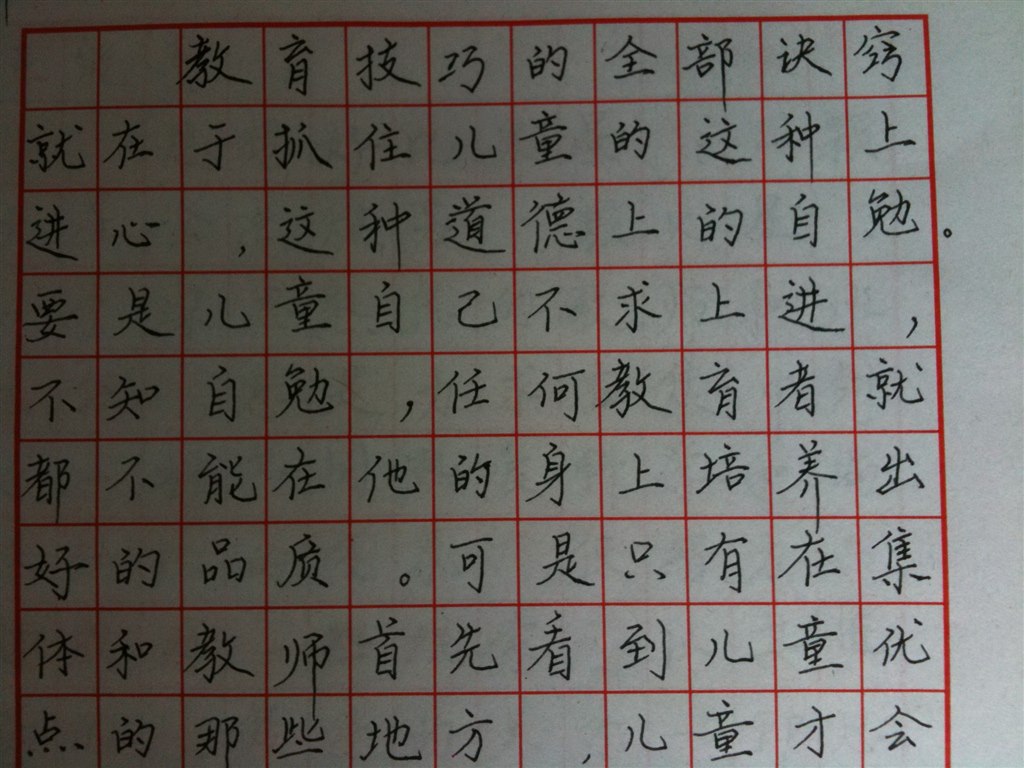 教育技巧的全部诀窍
就在于抓住儿童的这种上
进心，这种道德上的自勉。
要是儿童自己不求上进，
不知自勉，任何教育者就
都不能在他的身上培养出
好的品质。可是只有在集
体和教师首先看到儿童优
点的那些地方，儿童才会